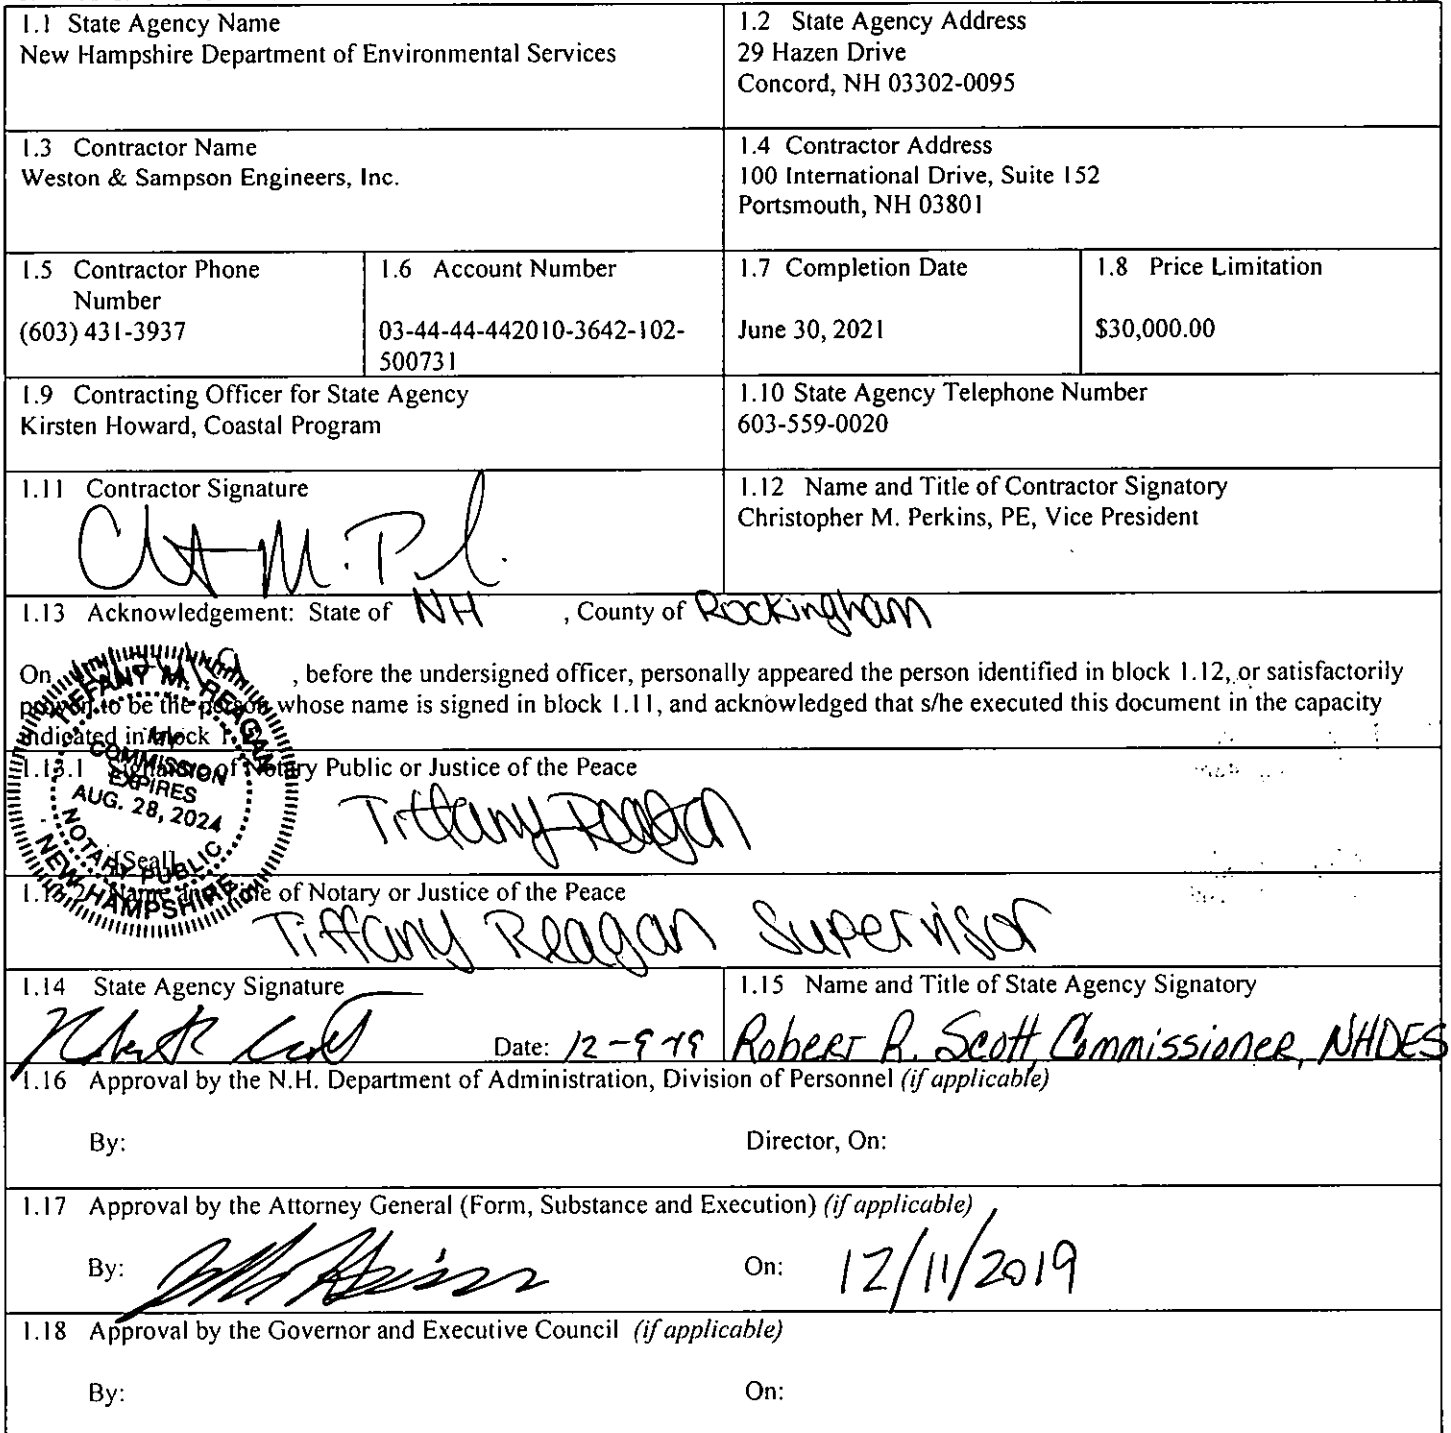 1.1 State Agency Name
New Hampshire Department of Environmental Services
1.2 State Agency Address
29 Hazen Drive
Concord, NH 03302-0095
1.3 Contractor Name
Weston & Sampson Engineers, Inc.
1.4 Contractor Address
100 International Drive, Suite 152
Portsmouth, NH 03801
1.5 Contractor Phone
Number
(603) 431-3937
1.6 Account Number
03-44-44-442010-3642-102-
500731
1.7 Completion Date
June 30, 2021
1.8 Price Limitation
$30,000.00
1.9 Contracting Officer for State Agency
Kirsten Howard, Coastal Program
1.10 State Agency Telephone Number
603-559-0020
1.11 Contractor Signature
1.12 Name and Title of Contractor Signatory
Christopher M. Perkins, PE, Vice President
1.13 Acknowledgement: State of NH , County of Rockingham
On , before the undersigned officer, personally appeared the person identified in block 1.12, or satisfactorily
proven to be the person whose name is signed in block 1.11, and acknowledged that s/he executed this document in the capacity
indicated in block
TIFFANY M. REAGAN
MY
COMMISSION
EXPIRES
AUG. 28, 2024
NOTARY PUBLIC
NEW HAMPSHIRE
1.13.1 Signature of Notary Public or Justice of the Peace
Tiffany Reagan
[Seal]
1.13.2 Name and Title of Notary or Justice of the Peace
Tiffany Reagan Supervisor
1.14 State Agency Signature
Date: 12-9-19
1.15 Name and Title of State Agency Signatory
Robert R. Scott, Commissioner, NHDES
1.16 Approval by the N.H. Department of Administration, Division of Personnel (if applicable)
By: Director, On:
1.17 Approval by the Attorney General (Form, Substance and Execution) (if applicable)
By: On: 12/11/2019
1.18 Approval by the Governor and Executive Council (if applicable)
By: On: